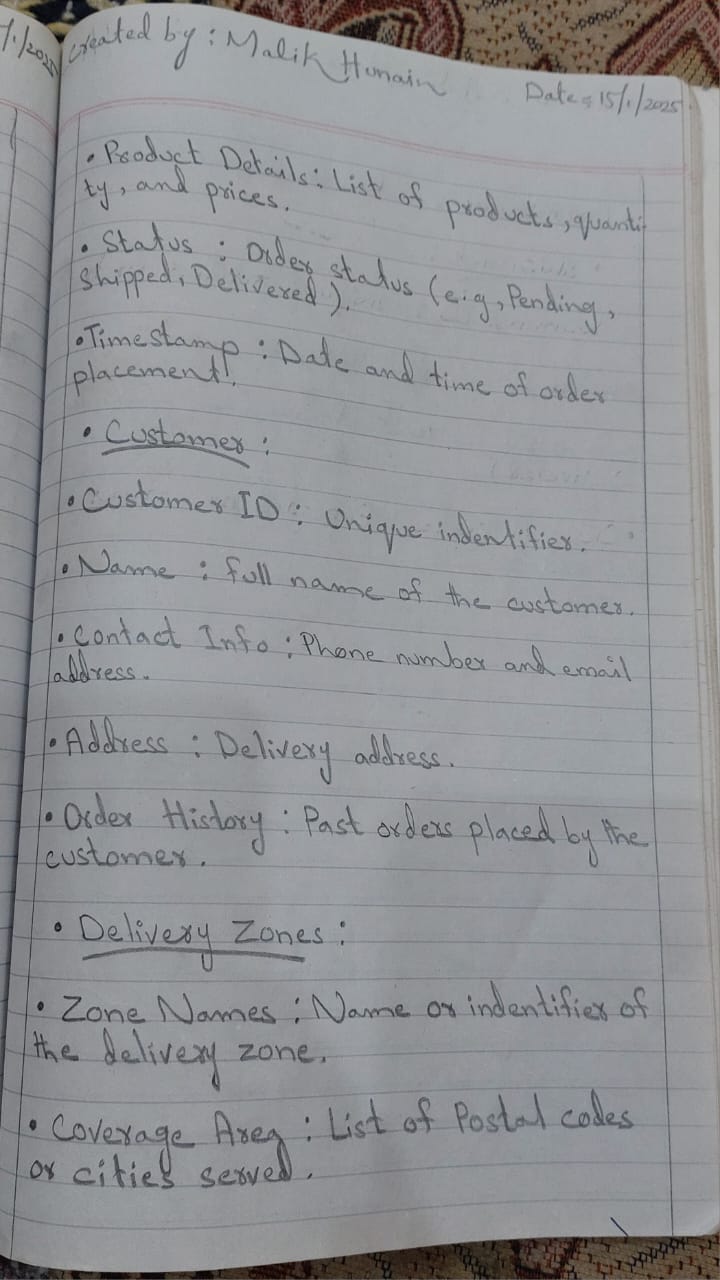 1/1/2025
Created by : Malik Hunain
Date = 15/1/2025
• Product Details : List of products, quanti
ty, and prices.
• Status : Order status (e.g, Pending,
Shipped, Delivered).
• Timestamp : Date and time of order
placement.
• Customer :
• Customer ID : Unique indentifier.
• Name : full name of the customer.
• Contact Info : Phone number and email
address.
• Address : Delivery address.
• Order History : Past orders placed by the
customer.
• Delivery Zones :
• Zone Names : Name or indentifier of
the delivery zone.
• Coverage Area : List of Postal codes
or cities served.